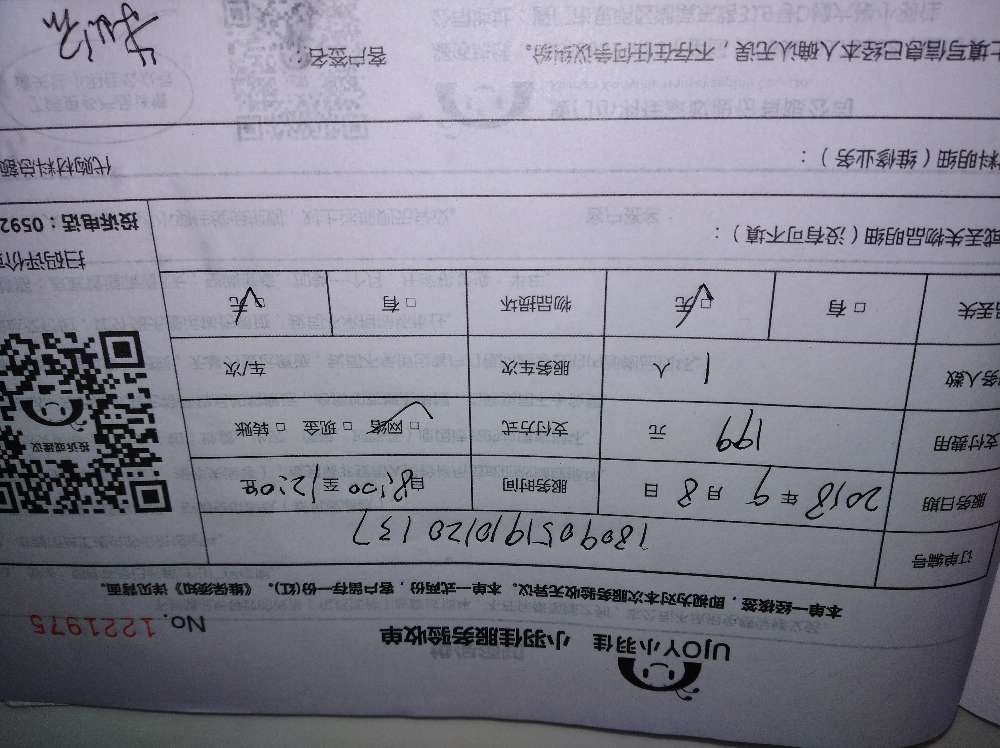 UJOY小羽佳 小羽佳服务验收单
No. 1221975
本单一经核签，即视为对本次服务验收无异议。本单一式两份，客户留存一份(红)。《维保须知》详见背面。
订单编号 18090519101201 37
服务日期 2018年9月8日 服务时间 自8:00至12:00止
支付费用 199 元 支付方式 □网络 □现金 □转账
务人数 1 人 服务车次 车/次
丢失 □有 □无 物品损坏 □有 □无
投诉或建议
扫码评价
投诉电话：0592
或丢失物品明细（没有可不填）：
料明细（维修业务）： 代购材料总额
上填写信息已经本人确认无误，不存在任何争议纠纷。 客户签名：